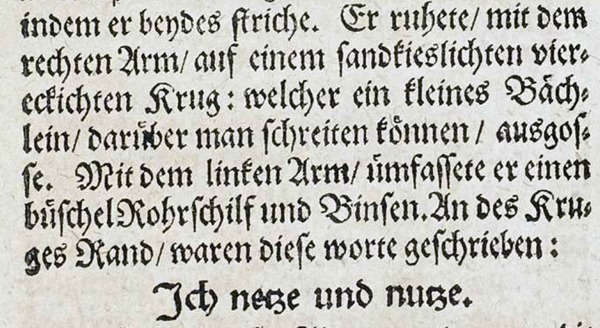 indem er beydes ſtriche. Er ruhete/ mit dem
rechten Arm/ auf einem ſandkieslichten vier-
eckichten Krug: welcher ein kleines Bäch-
lein/ darüber man ſchreiten können/ ausgoſ-
ſe. Mit dem linken Arm/ ümfaſſete er einen
büſchel Rohrſchilf und Binſen. An des Kru-
ges Rand/ waren dieſe worte geſchrieben:
Ich netze und nutze.